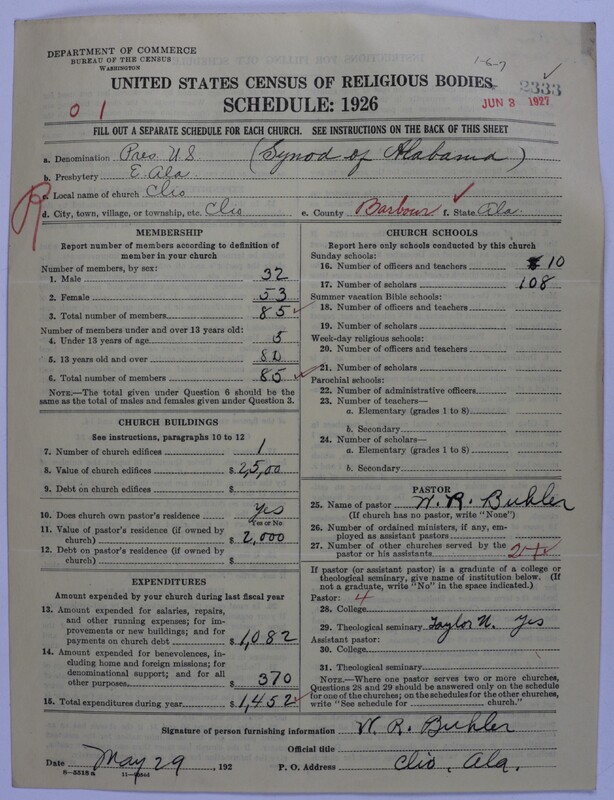 DEPARTMENT OF COMMERCE
BUREAU OF THE CENSUS
WASHINGTON
1-6-7
UNITED STATES CENSUS OF RELIGIOUS BODIES
SCHEDULE: 1926
2333
JUN 3 1927
0 1
FILL OUT A SEPARATE SCHEDULE FOR EACH CHURCH. SEE INSTRUCTIONS ON THE BACK OF THIS SHEET
a. Denomination Pres. U S (Synod of Alabama)
b. Presbytery E. Ala
c. Local name of church Clio
d. City, town, village, or township, etc. Clio e. County Barbour f. State Ala.
R
MEMBERSHIP
Report number of members according to definition of
member in your church
Number of members, by sex:
1. Male 32
2. Female 53
3. Total number of members 85
Number of members under and over 13 years old:
4. Under 13 years of age 5
5. 13 years old and over 80
6. Total number of members 85
NOTE.—The total given under Question 6 should be
the same as the total of males and females given under Question 3.
CHURCH BUILDINGS
See instructions, paragraphs 10 to 12
7. Number of church edifices 1
8. Value of church edifices $ 2,500
9. Debt on church edifices $
10. Does church own pastor's residence? Yes
Yes or No
11. Value of pastor's residence (if owned by
church) $ 2,000
12. Debt on pastor's residence (if owned by
church) $
EXPENDITURES
Amount expended by your church during last fiscal year
13. Amount expended for salaries, repairs,
and other running expenses; for im-
provements or new buildings; and for
payments on church debt $ 1,082
14. Amount expended for benevolences,
including home and foreign missions; for
denominational support; and for all
other purposes $ 370
15. Total expenditures during year $ 1,452
CHURCH SCHOOLS
Report here only schools conducted by this church
Sunday schools:
16. Number of officers and teachers 10
17. Number of scholars 108
Summer vacation Bible schools:
18. Number of officers and teachers
19. Number of scholars
Week-day religious schools:
20. Number of officers and teachers
21. Number of scholars
Parochial schools:
22. Number of administrative officers
23. Number of teachers—
a. Elementary (grades 1 to 8)
b. Secondary
24. Number of scholars—
a. Elementary (grades 1 to 8)
b. Secondary
PASTOR
25. Name of pastor W. R. Buhler
(If church has no pastor, write "None")
26. Number of ordained ministers, if any, em-
ployed as assistant pastors
27. Number of other churches served by the
pastor or his assistants
If pastor (or assistant pastor) is a graduate of a college or
theological seminary, give name of institution below. (If
not a graduate, write "No" in the space indicated.)
Pastor: 4
28. College
29. Theological seminary Taylor U. Yes
Assistant pastor:
30. College
31. Theological seminary
NOTE.—Where one pastor serves two or more churches,
Questions 28 and 29 should be answered only on the schedule
for one of the churches; on the schedules for the other churches,
write "See schedule for ........ church."
Signature of person furnishing information W. R. Buhler
Official title
Date May 29, 192 P. O. Address Clio, Ala.
8—5513a